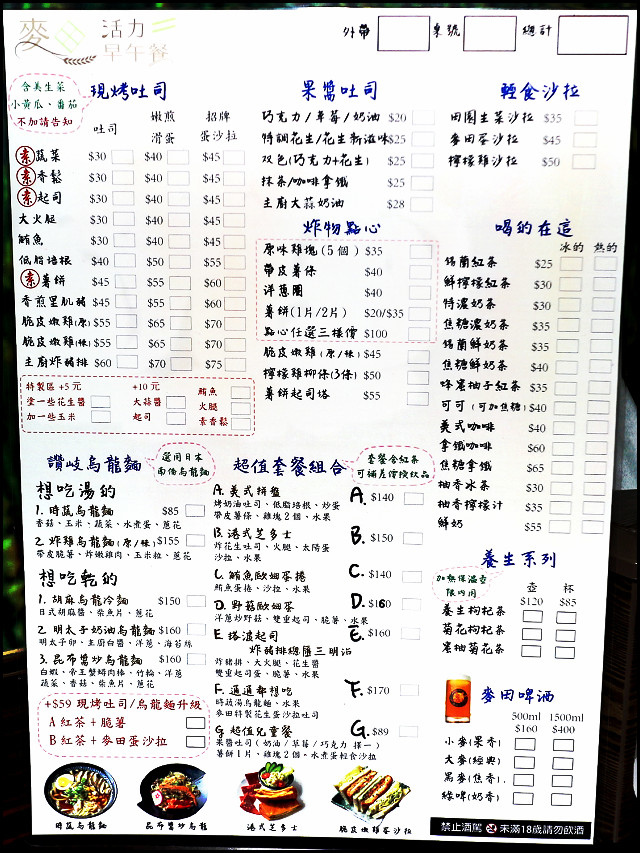 麥田 活力早午餐
外帶 桌號 總計
含美生菜
小黃瓜、番茄
不加請告知
現烤吐司
吐司 嫩煎滑蛋 招牌蛋沙拉
素蔬菜 $30 $40 $45
素香鬆 $30 $40 $45
素起司 $30 $40 $45
大火腿 $30 $40 $45
鮪魚 $30 $40 $45
低脂培根 $40 $50 $55
素薯餅 $45 $55 $60
香煎里肌豬 $45 $55 $60
脆皮嫩雞(原) $55 $65 $70
脆皮嫩雞(辣) $55 $65 $70
主廚炸豬排 $60 $70 $75
特製區 +5元
塗一些花生醬
加一些玉米
+10元
大蒜醬
起司
鮪魚
火腿
素香鬆
果醬吐司
巧克力/草莓/奶油 $20
特調花生/花生新滋味 $25
双色(巧克力+花生) $25
抹茶/咖啡拿鐵 $25
主廚大蒜奶油 $28
炸物點心
原味雞塊(5個) $35
帶皮薯條 $40
洋蔥圈 $40
薯餅(1片/2片) $20/$35
點心任選三樣價 $100
脆皮嫩雞(原/辣) $45
檸檬雞柳條(3條) $50
薯餅起司塔 $55
輕食沙拉
田園生菜沙拉 $35
麥田蛋沙拉 $45
檸檬雞沙拉 $50
喝的在這
冰的 熱的
錫蘭紅茶 $25
鮮檸檬紅茶 $30
特濃奶茶 $30
焦糖濃奶茶 $35
錫蘭鮮奶茶 $35
焦糖鮮奶茶 $40
蜂蜜柚子紅茶 $35
可可(可加焦糖) $40
美式咖啡 $40
拿鐵咖啡 $60
焦糖拿鐵 $65
柚香冰茶 $30
柚香檸檬汁 $35
鮮奶 $55
養生系列
加熱保溫壺
限內用
壺 $120 杯 $85
養生枸杞茶
菊花枸杞茶
蜜柚菊花茶
麥田啤酒
500ml $160 1500ml $400
小麥(果香)
大麥(經典)
黑麥(焦香)
綠啤(奶香)
禁止酒駕 未滿18歲請勿飲酒
讚岐烏龍麵
選用日本
讚岐烏龍麵
想吃湯的
1. 時蔬烏龍麵 $85
香菇、玉米、蔬菜、水煮蛋、蔥花
2. 炸雞烏龍麵(原/辣) $155
帶皮脆薯、炸嫩雞肉、玉米粒、蔥花
想吃乾的
1. 胡麻烏龍冷麵 $150
日式胡麻醬、柴魚片、蔥花
2. 明太子奶油烏龍麵 $160
明太子卵、主廚白醬、洋蔥、海苔絲
3. 昆布醬炒烏龍麵 $160
白蝦、帝王蟹蟳肉棒、竹輪、洋蔥
蔬菜、香菇、柴魚片、蔥花
+$59 現烤吐司/烏龍麵升級
A 紅茶+脆薯
B 紅茶+麥田蛋沙拉
超值套餐組合
套餐含紅茶
可補差價換飲品
A. 美式拼盤 A. $140
烤奶油吐司、低脂培根、炒蛋
帶皮薯條、雞塊2個、水果
B. 港式芝多士 B. $150
炸花生吐司、火腿、太陽蛋
沙拉、水果
C. 鮪魚歐姆蛋捲 C. $140
鮪魚蛋捲、沙拉、水果
D. 野菇歐姆蛋 D. $160
洋蔥炒野菇、雙重起司、脆薯、水果
E. 塔濃起司 E. $160
炸豬排總匯三明治
炸豬排、大火腿、花生醬
雙重起司蛋、脆薯、水果
F. 通通都想吃 F. $170
時蔬湯烏龍麵、水果
麥田特製花生蛋沙拉吐司
G. 超值兒童餐 G. $89
果醬吐司(奶油/草莓/巧克力 擇一)
薯餅1片、雞塊2個、水煮蛋輕食沙拉
時蔬烏龍麵 昆布醬炒烏龍 港式芝多士 脆皮嫩雞蛋沙拉